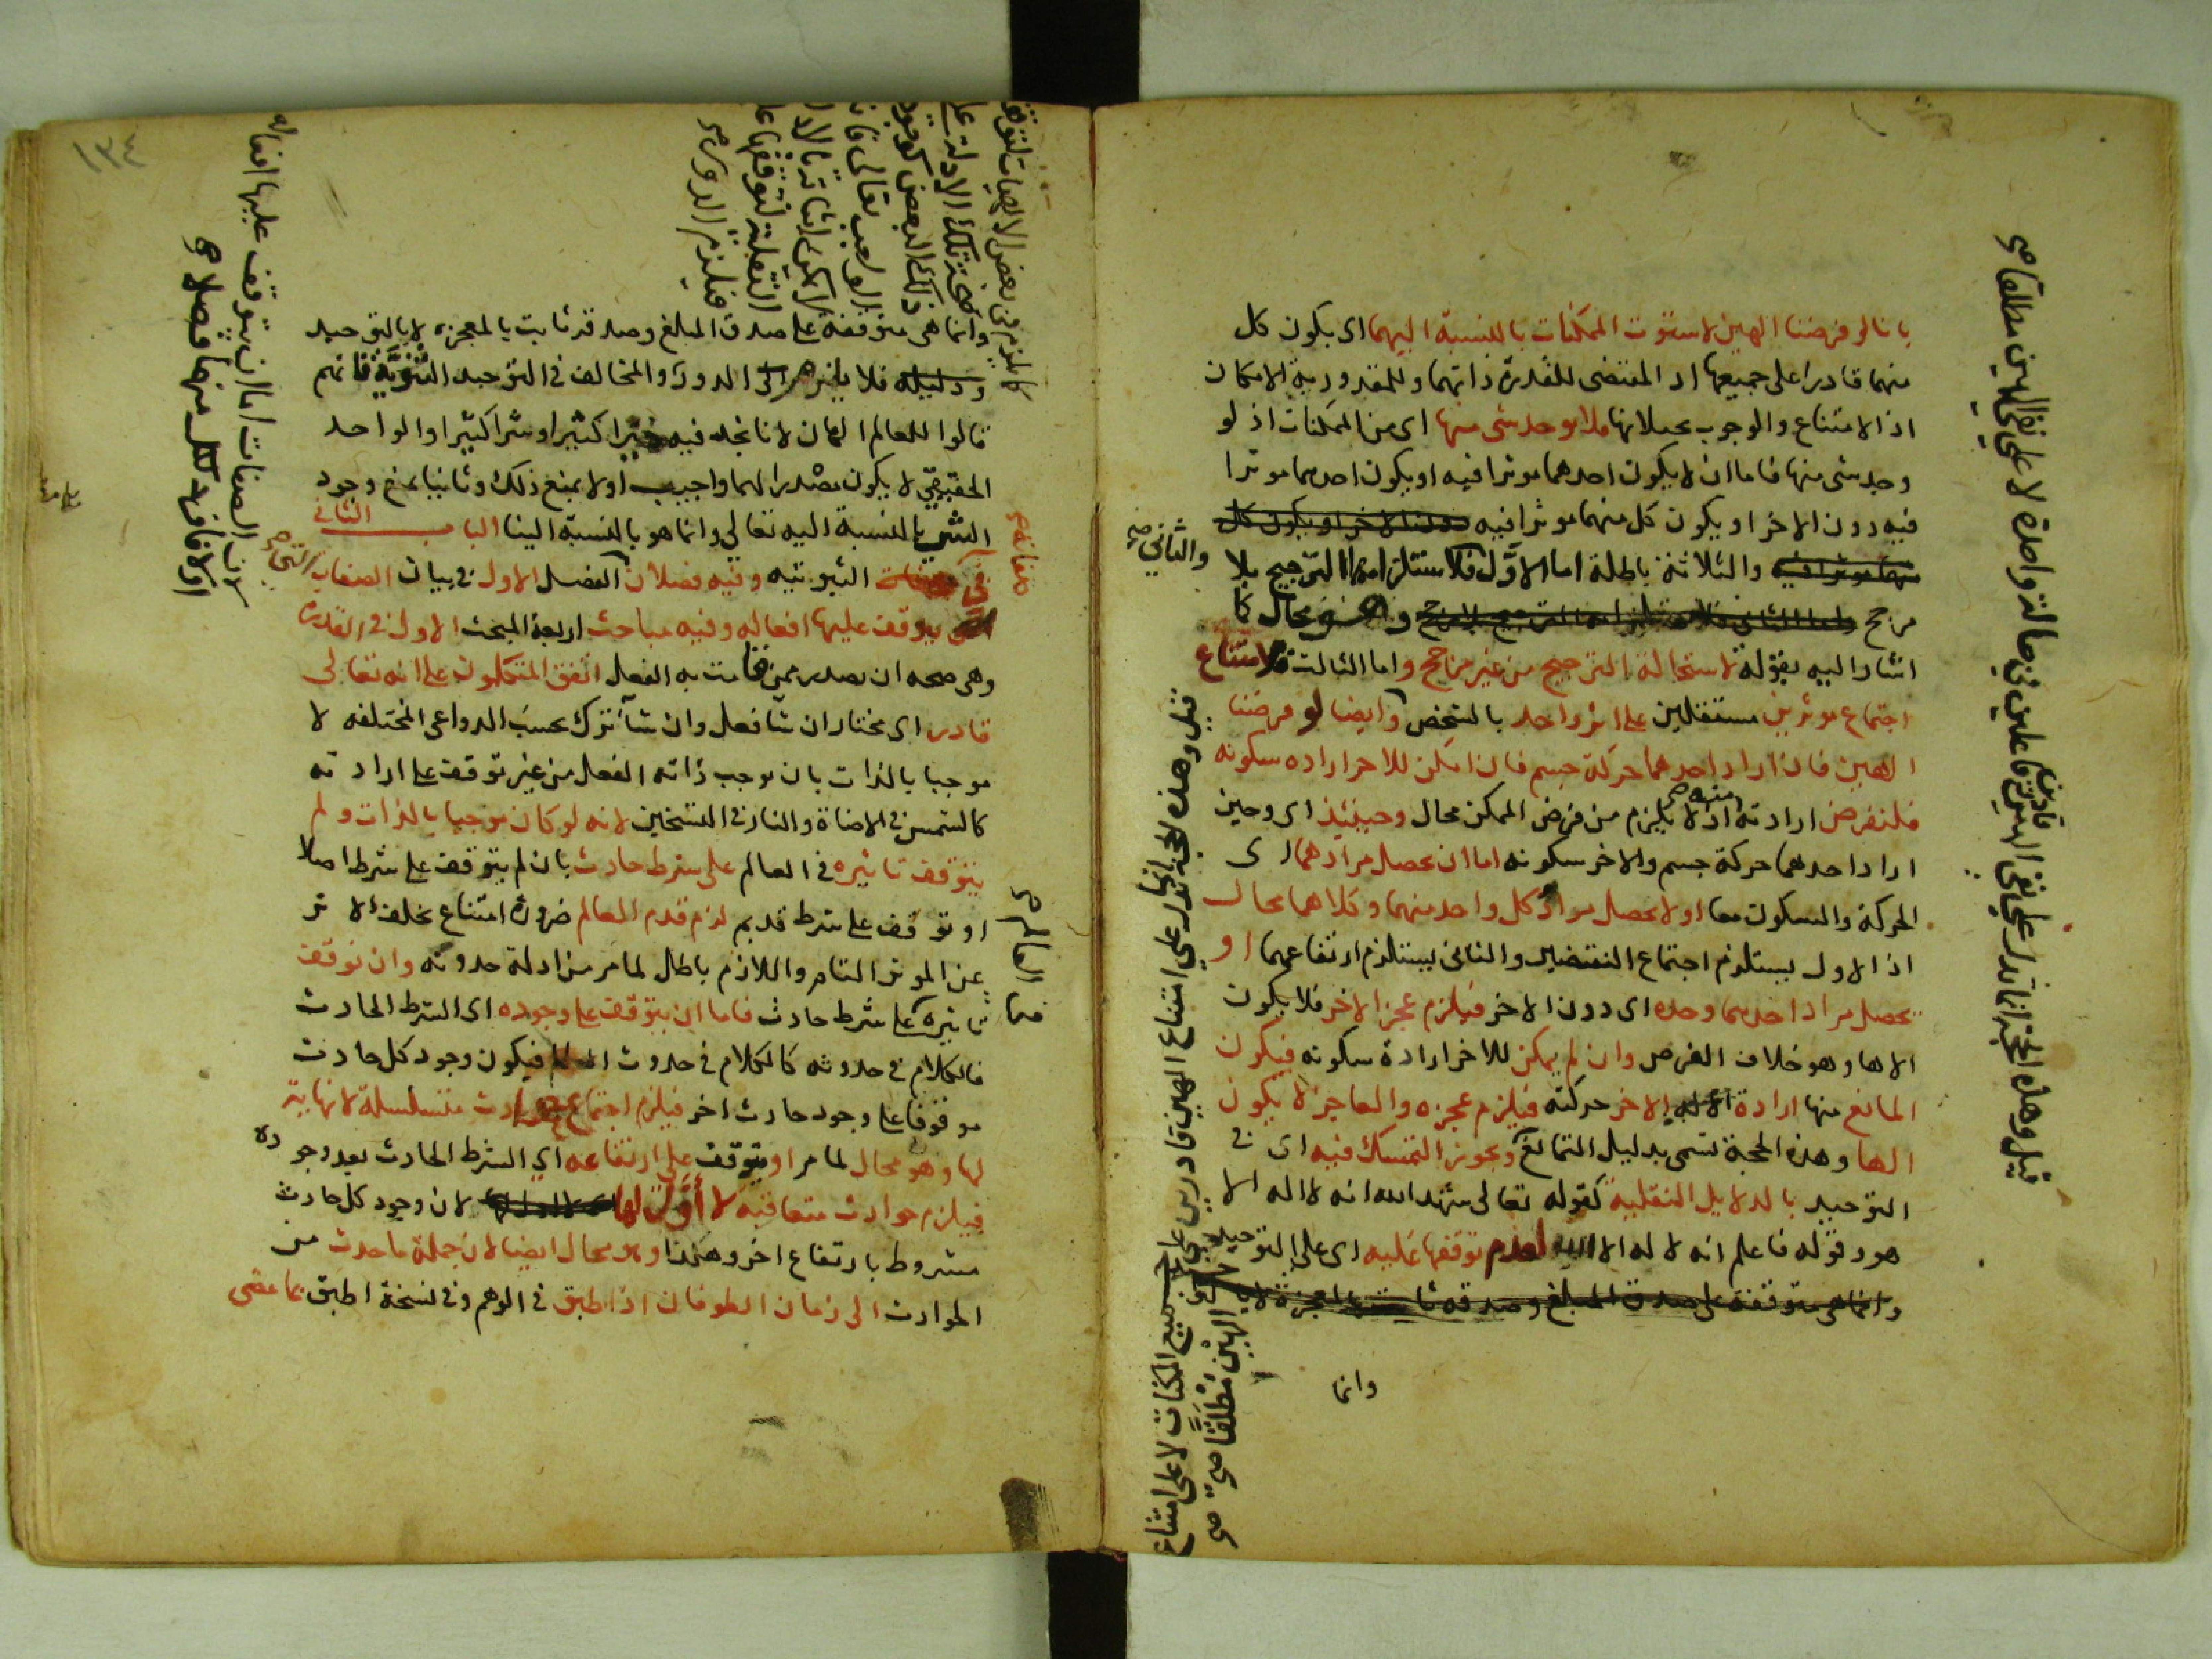 بانا لو فرضنا الهين لاستوت الممكنات بالنسبة اليهما اى يكون كل
منهما قادرا على جميعها اذ المقتضى للقدرة ذاتهما وللمقدورية الامكان
اذ الامتناع والوجوب يحيلانها فلا يوجد شى منها اى من الممكنات اذ لو
وجد شى منها فاما ان لا يكون احدهما موثرا فيه او يكون احدهما موثرا
فيه دون الاخر او يكون كل منهما موثرا فيه دون الاخر او يكون كل
منهما موثرا فيه والثلاثة باطلة اما الاول فلاستلزامه الترجيح بلا
والثانى صح
مرجح واما الثانى فلاستلزامه الترجيح بلا مرجح وهو محال كما
اشار اليه بقوله لاستحالة الترجيح من غير مرجح واما الثالث فلامتناع
اجتماع موثرين مستقلين على اثر واحد بالشخص وايضا لو فرضنا
الهين فان اراد احدهما حركة جسم فان امكن للاخر ارادة سكونه
فلنفرض ارادته اذ لا يلزم من فرض الممكن محال وحينئذ اى وحين
منه صح
اراد احدهما حركة جسم والاخر سكونه اما ان يحصل مرادهما اى
الحركة والسكون معا او لا يحصل مراد كل واحد منهما وكلاهما محال
اذ الاول يستلزم اجتماع النقيضين والثانى يستلزم ارتفاعهما او
يحصل مراد احدهما وحده اى دون الاخر فيلزم عجز الاخر فلا يكون
الاها وهو خلاف الفرض وان لم يمكن للاخر ارادة سكونه فيكون
المانع منها ارادة الاخر حركته فيلزم عجزه والعاجز لا يكون
الها وهذه الحجة تسمى بدليل التمانع ويجوز التمسك فيه اى فى
التوحيد بالدلايل النقلية كقوله تعالى شهد الله انه لا اله الا
هو وقوله فاعلم انه لا اله الا الله لعدم توقفها عليه اى على التوحيد
وانما هى متوقفة على صدق المبلغ وصدقه ثابت بالمعجزة لا
وانما
قيل وهذه الحجة انما تدل على نفى الهين قادرين فاعلين فى حالة واحدة لا على نفى الهين مطلقا صح
قيل وهذه الحجة انما تدل على امتناع الهين قادرين على جميع الممكنات لا على امتناع
الهين مطلقا صح
١٣٤
وانما هى متوقفة على صدق المبلغ وصدقه ثابت بالمعجزه لا بالتوحيد
ودليله فلا يلزم الدور والمخالف فى التوحيد الثنوية فانهم
قالوا للعالم الهان لانا نجد فيه خيرا كثيرا وشرا كثيرا والواحد
الحقيقى لا يكون مصدرا لهما واجيب اولا بمنع ذلك وثانيا بمنع وجود
الشر بالنسبة اليه تعالى وانما هو بالنسبة الينا الباب الثانى
فى صفاته الثبوتيه وفيه فصلان الفصل الاول فى بيان الصفات
صفاته صح
التى صح
التى يتوقف عليها افعاله وفيه مباحث اربعة المبحث الاول فى القدرة
وهى صحة ان يصدر ممن قامت به الفعل اتفق المتكلون على انه تعالى
قادر اى مختار ان شا فعل وان شآ ترك بحسب الدواعى المختلفه لا
موجبا بالذات بان يوجب ذاته الفعل من غير توقف على ارادته
كالشمس فى الاضاة والنار فى التسخين لانه لو كان موجبا بالذات ولم
يتوقف تاثيره فى العالم على شرط حادث بان لم يتوقف على شرط اصلا
او توقف على شرط قديم لزم قدم العالم ضرورة امتناع تخلف الاثر
عن الموثر التام واللازم باطل لما مر من ادلة حدوثه وان توقف
تاثيره على شرط حادث فاما ان يتوقف على وجوده اى الشرط الحادث
فالكلام فى حدوثه كالكلام فى حدوث العالم فيكون وجود كل حادث
موقوفا على وجود حادث اخر فيلزم اجتماع حوادث متسلسلة لا نهاية
لها وهو محال لما مر او يتوقف على ارتفاعه اى الشرط الحادث بعد وجوده
فيلزم حوادث متعاقبة لا اول لها لان وجود كل حادث
مشروط بارتفاع اخر وهكذا وهو محال ايضا لان جملة ما حدث من
الحوادث الى زمان الطوفان اذا اطبق فى الوهم وفى نسخة اطبق بما مضى
العالم صح